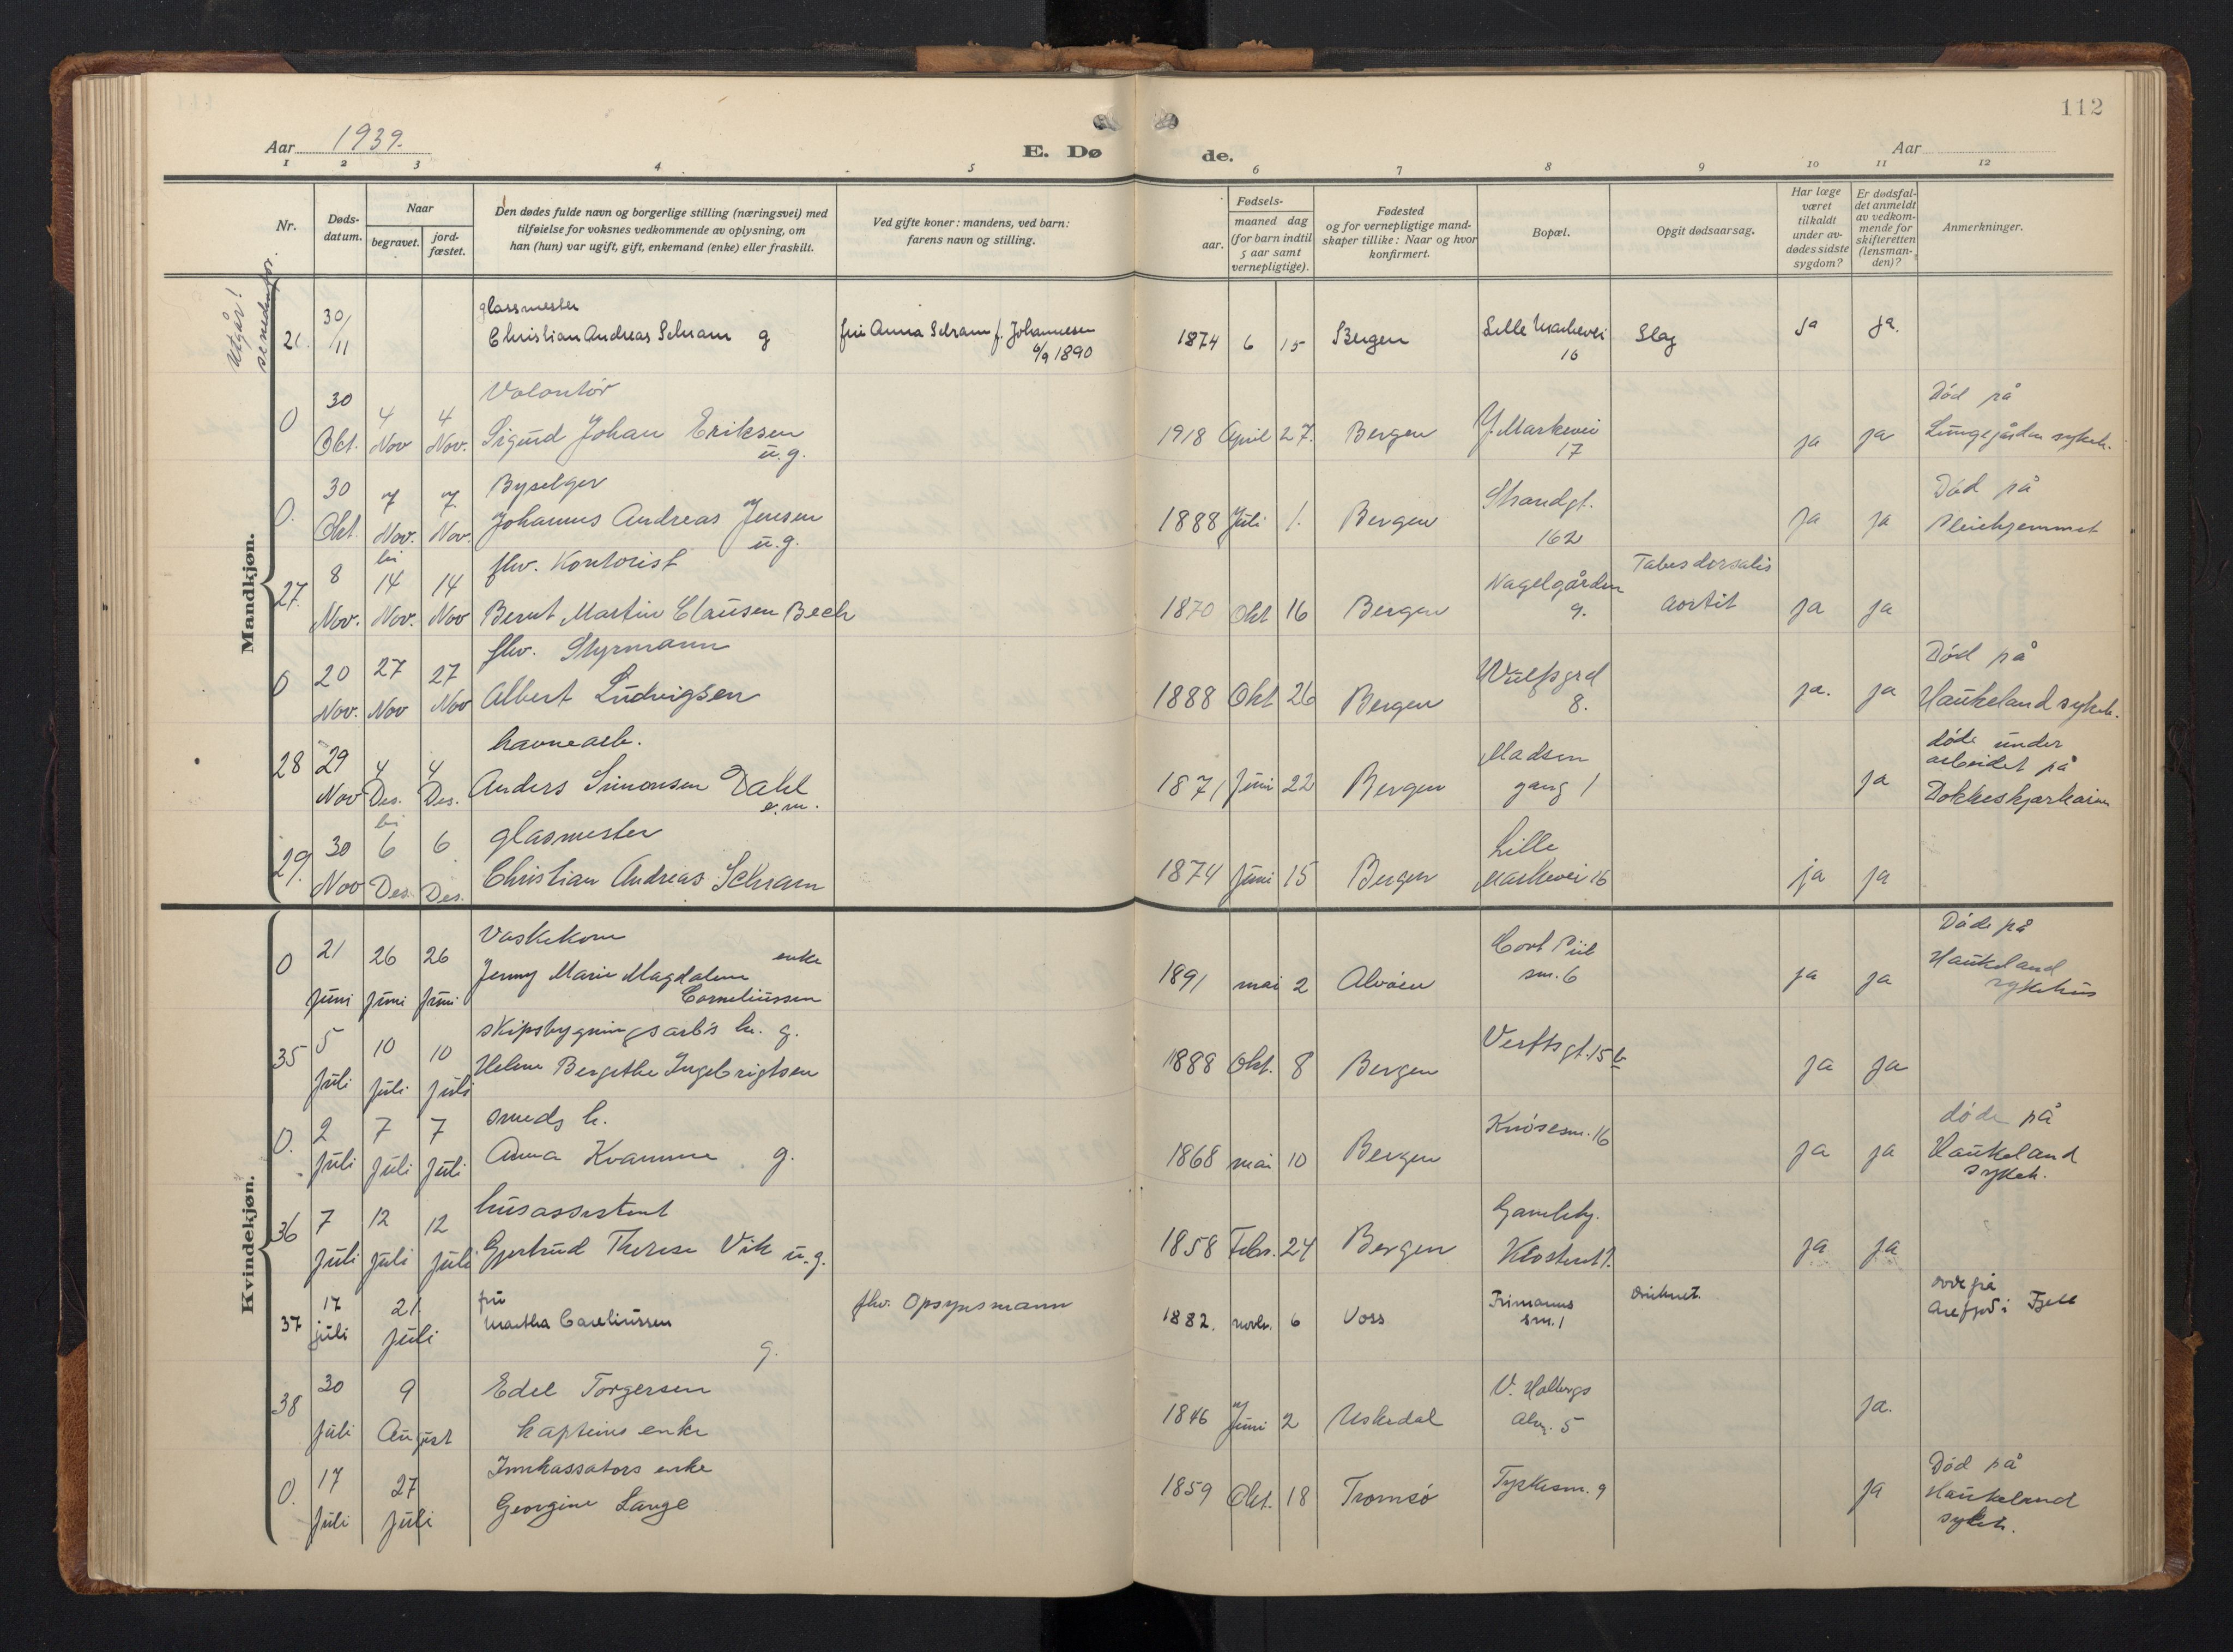 112
Aar 1939.
E. Dø
de.
Aar
1 2 3 4 5 6 7 8 9 10 11 12
Nr.
Døds-
datum.
Naar
begravet.
jord-
fæstet.
Den dødes fulde navn og borgerlige stilling (næringsvei) med
tilføielse for voksnes vedkommende av oplysning, om
han (hun) var ugift, gift, enkemand (enke) eller fraskilt.
Ved gifte koner: mandens, ved barn:
farens navn og stilling.
Fødsels-
aar.
maaned dag
(for barn indtil
5 aar samt
vernepligtige).
Fødested
og for vernepligtige mand-
skaper tillike: Naar og hvor
konfirmert.
Bopæl.
Opgit dødsaarsag.
Har læge
været
tilkaldt
under av-
dødes sidste
sygdom?
Er dødsfal-
det anmeldt
av vedkom-
mende for
skifteretten
(lensman-
den)?
Anmerkninger.
Mandkjøn.
Utgår!
se nedenfor.
glassmester
21. 30/11 Christian Andreas Schram g fru Anna Schram f. Johannesen 1874 6 15 Bergen Lille Markevei Slag ja ja.
6/9 1890 16
30 Volontør Død på
0 Okt. 4 Nov 4 Nov. Sigurd Johan Eriksen 1918 April 27. Bergen Y. Markevei ja ja Lungegården sykeh.
u.g. 17
30 7 7 Byselger Strandgt. Død på
0. Okt. Nov. Nov. Johannes Andreas Jensen 1888 Juli 1. Bergen ja ja Pleiehjemmet
u.g. 162
8 14 14 fhv. Kontorist Nagelgården Tabes dorsalis
27. Nov. Nov. Nov Bernt Martin Clausen Bech 1870 Okt 16 Bergen 9. Aortit ja ja
20 27 27 fhv. Styrmann Wulfsgrd Død på
0 Nov. Nov Nov Albert Ludvigsen 1888 Okt 26 Bergen 8. ja. ja Haukeland sykeh.
29 4 4 havnearb. Madsen døde under
28 Nov Des. Des. Anders Simonsen Dahl 1871 Juni 22 Bergen gang 1 ja arbeidet på
e.m. Dokkeskjærkaien
30 6 6 glasmester Lille
29. Nov Des. Des. Christian Andreas Schram 1874 Juni 15 Bergen Markevei 16 ja ja
Kvindekjøn.
21 26 26 Vaskekone enke Cort Piil Døde på
0 Juni Juni Juni Jenny Marie Magdalene 1891 mai 2 Alvøen sm. 6 ja ja Haukeland
Corneliussen sykehus
5 10 10 skipsbygningsarb's h. g. Verftsgt. 15 b
35 Juli Juli Juli Helene Bergithe Ingebrigtsen 1888 Okt. 8 Bergen ja ja
2 7 7 smeds h. Knøsesm. 16 døde på
0. Juli Juli Juli Anna Kvamme g. 1868 mai 10 Bergen ja ja Haukeland
sykeh.
7 12 12 husassistent Gamleby.
36 Juli Juli Juli Gjertrud Therese Vik u.g. 1858 Febr. 24 Bergen Klostret 1. ja ja
17 21 fru fhv. Opsynsmann
37 juli juli Martha Careliussen g. 1882. novbr. 6 Voss Frimanns sm. 1 druknet. i Fjell
30 9 Edel Torgersen V. Holbergs
38 Juli August kapteins enke 1846 Juni 2 Uskedal Alm. 5 ja.
17 27 Innkassators enke Død på
0. Juli Juli Georgine Lange 1859 Okt. 18 Tromsø Tyskesm. 9 ja Haukeland
sykeh.